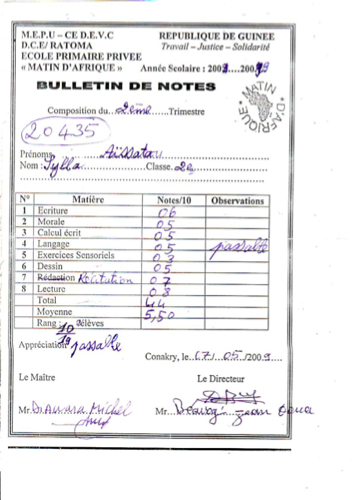 M.E.P.U – CE D.E.V.C REPUBLIQUE DE GUINEE
D.C.E/ RATOMA Travail – Justice – Solidarité
ECOLE PRIMAIRE PRIVEE
« MATIN D'AFRIQUE » Année Scolaire : 200....200.9
MATIN D'AFRIQUE
BULLETIN DE NOTES
Composition du..2ème.....Trimestre
20435
Prénoms Aïssatou
Nom : Sylla Classe. 2e
N° Matière Notes/10 Observations
1 Ecriture 06
2 Morale 05
3 Calcul écrit 05
4 Langage 05 passable
5 Exercices Sensoriels 03
6 Dessin 05
7 Rédaction Récitation 07
8 Lecture 08
Total 44
Moyenne 5,50
Rang 10/19 élèves
Appréciation passable
Conakry, le..17.. 05 ./200.9....
Le Maître Le Directeur
Mr. Michel Mr... Jean